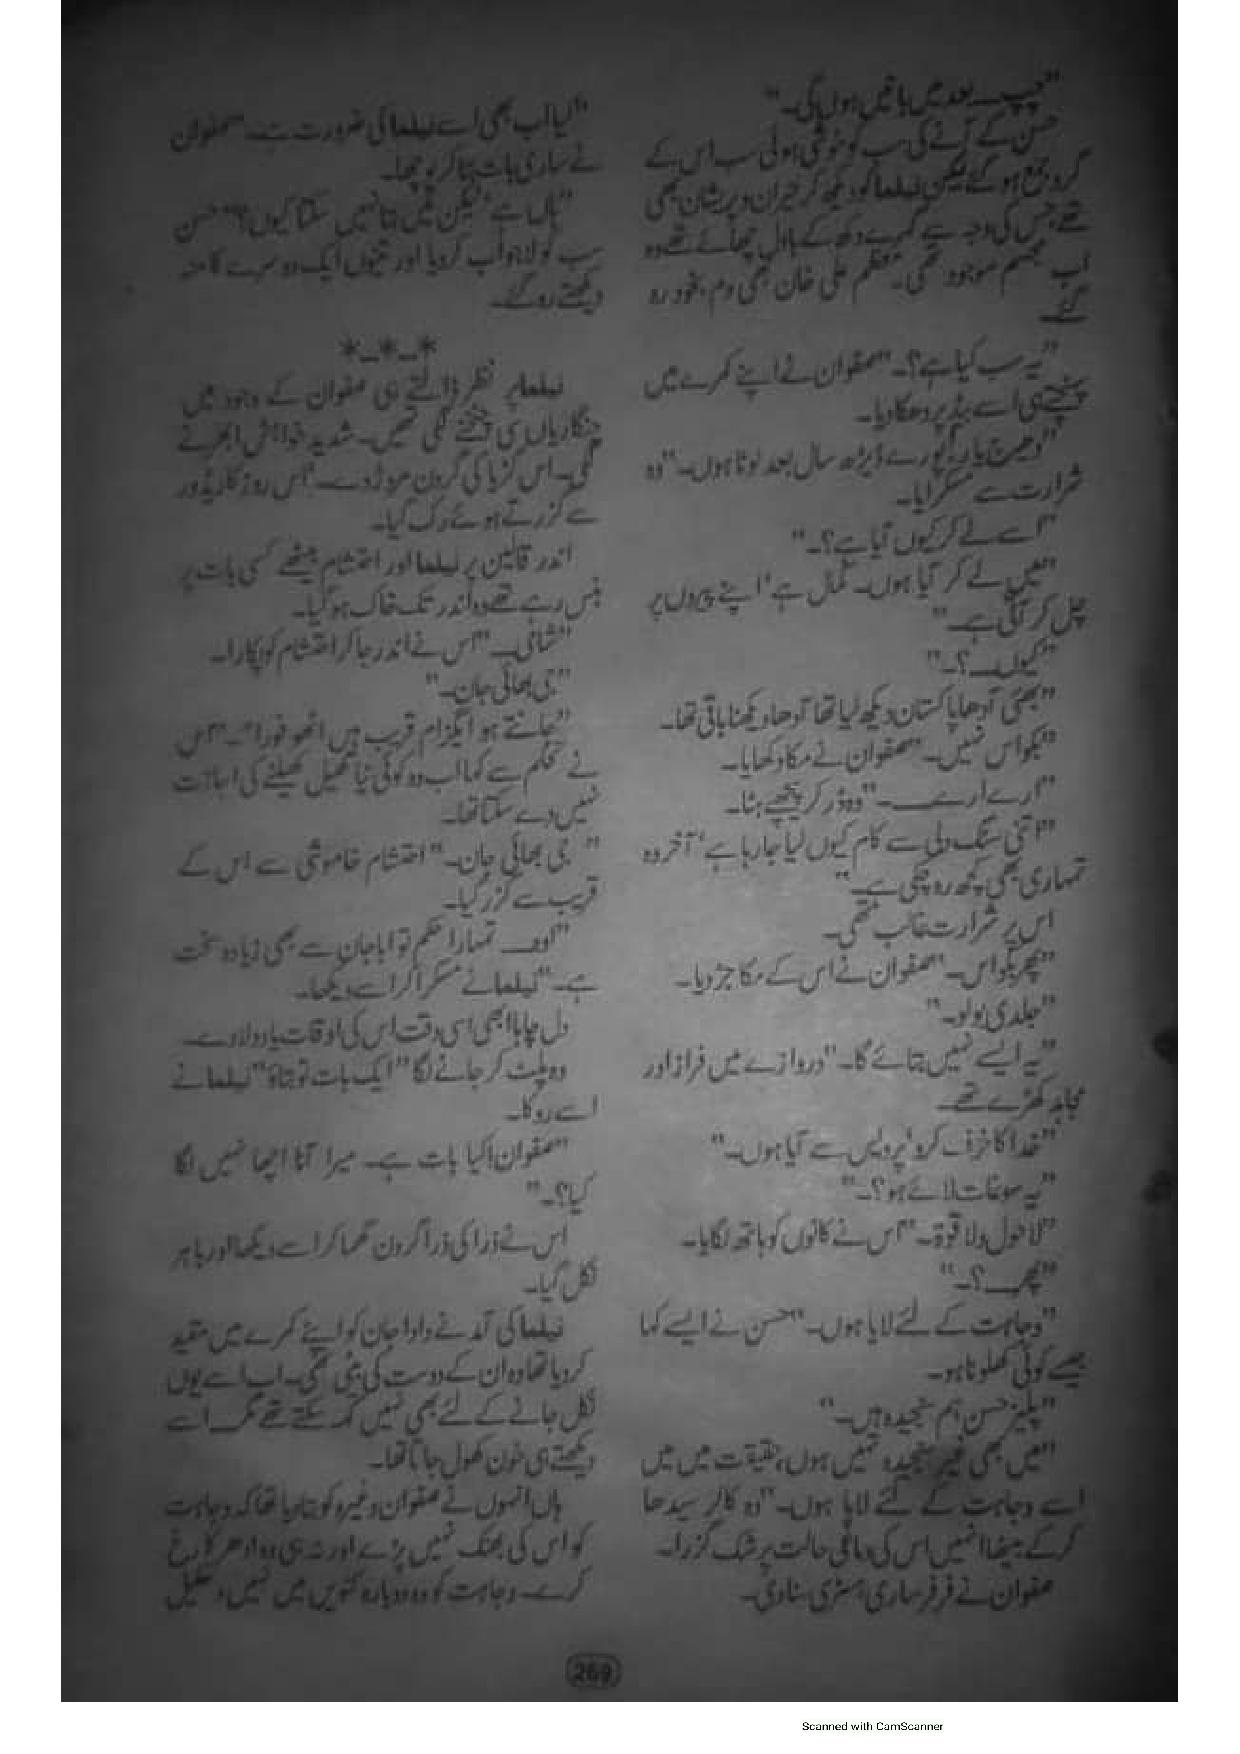 "چپ۔ بعد میں باتیں ہوں گی۔"
حسن کے آنے کی سب کو خوشی ہوئی سب اس کے
گرد جمع ہو گئے لیکن نیلما کو دیکھ کر حیران و پریشان بھی
تھے جس کی وجہ سے گہرے دکھ کے بادل چھائے تھے وہ
اب مجسم موجود تھی۔ معظم علی خان بھی دم بخود رہ
گئے۔
"یہ سب کیا ہے؟۔" صفوان نے اپنے کمرے میں
پہنچتے ہی اسے بیڈ پر دھکا دیا۔
"دھیرج یار، پورے ڈیڑھ سال بعد لوٹا ہوں۔" وہ
شرارت سے مسکرایا۔
"اسے لے کر کیوں آیا ہے؟۔"
"میں لے کر آیا ہوں۔ کمال ہے' اپنے پیروں پر
چل کر آئی ہے۔"
"کیوں۔؟۔"
"بھئی آدھا پاکستان دیکھ لیا تھا آدھا دیکھنا باقی تھا۔
"بکواس نہیں۔" صفوان نے مکا دکھایا۔
"ارے ارے۔" وہ ڈر کر پیچھے ہٹا۔
"اتنی سنگ دلی سے کام کیوں لیا جا رہا ہے' آخر وہ
تمہاری بھی کچھ رہ چکی ہے۔"
اس پر شرارت غالب تھی۔
"پھر بکواس۔" صفوان نے اس کے مکا جڑ دیا۔
"جلدی بولو۔"
"یہ ایسے نہیں بتائے گا۔" دروازے میں فراز اور
مجاہد کھڑے تھے۔
"خدا کا خوف کرو' پردیس سے آیا ہوں۔"
"یہ سوغات لائے ہو؟۔"
"لاحول ولا قوۃ۔" اس نے کانوں کو ہاتھ لگایا۔
"پھر۔؟۔"
"وجاہت کے لئے لایا ہوں۔" حسن نے ایسے کہا
جیسے کوئی کھلونا ہو۔
"پلیز حسن ہم سنجیدہ ہیں۔"
"میں بھی غیر سنجیدہ نہیں ہوں، حقیقت میں میں
اسے وجاہت کے لئے لایا ہوں۔" وہ کالر سیدھا
کر کے بیٹھا انہیں اس کی دماغی حالت پر شک گزرا۔
صفوان نے فرفر ساری ہسٹری سنا دی۔
"کیا اب بھی اسے نیلما کی ضرورت ہے۔" صفوان
نے ساری بات بتا کر پوچھا۔
"ہاں ہے' لیکن میں بتا نہیں سکتا کیوں؟" حسن
سب کو لاجواب کر دیا اور تینوں ایک دوسرے کا منہ
دیکھتے رہ گئے۔
*_*_*
نیلما پر نظر ڈالتے ہی صفوان کے وجود میں
چنگاریاں سی چٹخنے لگی تھیں۔ شدید خواہش ابھرنے
لگی۔ اس گڑیا کی گردن مروڑ دے۔ اس روز کاریڈور
سے گزرتے ہوئے رک گیا۔
اندر قالین پر نیلما اور احتشام بیٹھے کسی بات پر
ہنس رہے تھے وہ اندر تک خاک ہو گیا۔
"شانی۔" اس نے اندر جا کر احتشام کو پکارا۔
"جی بھائی جان۔"
"جانتے ہو ایگزام قریب ہیں اٹھو فورا"۔" اس
نے تحکم سے کہا اب وہ کوئی نیا کھیل کھیلنے کی اجازت
نہیں دے سکتا تھا۔
"جی بھائی جان۔" احتشام خاموشی سے اس کے
قریب سے گزر گیا۔
"اوف تمہارا حکم تو ابا جان سے بھی زیادہ سخت
ہے۔" نیلما نے مسکرا کر اسے دیکھا۔
دل چاہا ابھی اسی وقت اس کی اوقات یاد دلا دے۔
وہ پلٹ کر جانے لگا "ایک بات تو بتاؤ" نیلما نے
اسے روکا۔
"صفوان! کیا بات ہے۔ میرا آنا اچھا نہیں لگا
کیا؟۔"
اس نے ذرا کی ذرا گردن گھما کر اسے دیکھا اور باہر
نکل گیا۔
نیلما کی آمد نے دادا جان کو اپنے کمرے میں مقید
کر دیا تھا وہ ان کے دوست کی بیٹی تھی۔ اب اسے یوں
نکل جانے کے لئے بھی نہیں کہہ سکتے تھے مگر اسے
دیکھتے ہی خون کھول جاتا تھا۔
ہاں انہوں نے صفوان وغیرہ کو بتا دیا تھا کہ وجاہت
کو اس کی بھنک نہیں پڑے اور نہ ہی وہ ادھر کا رخ
کرے۔ وجاہت کو وہ دوبارہ کنویں میں نہیں دھکیل
269
Scanned with CamScanner